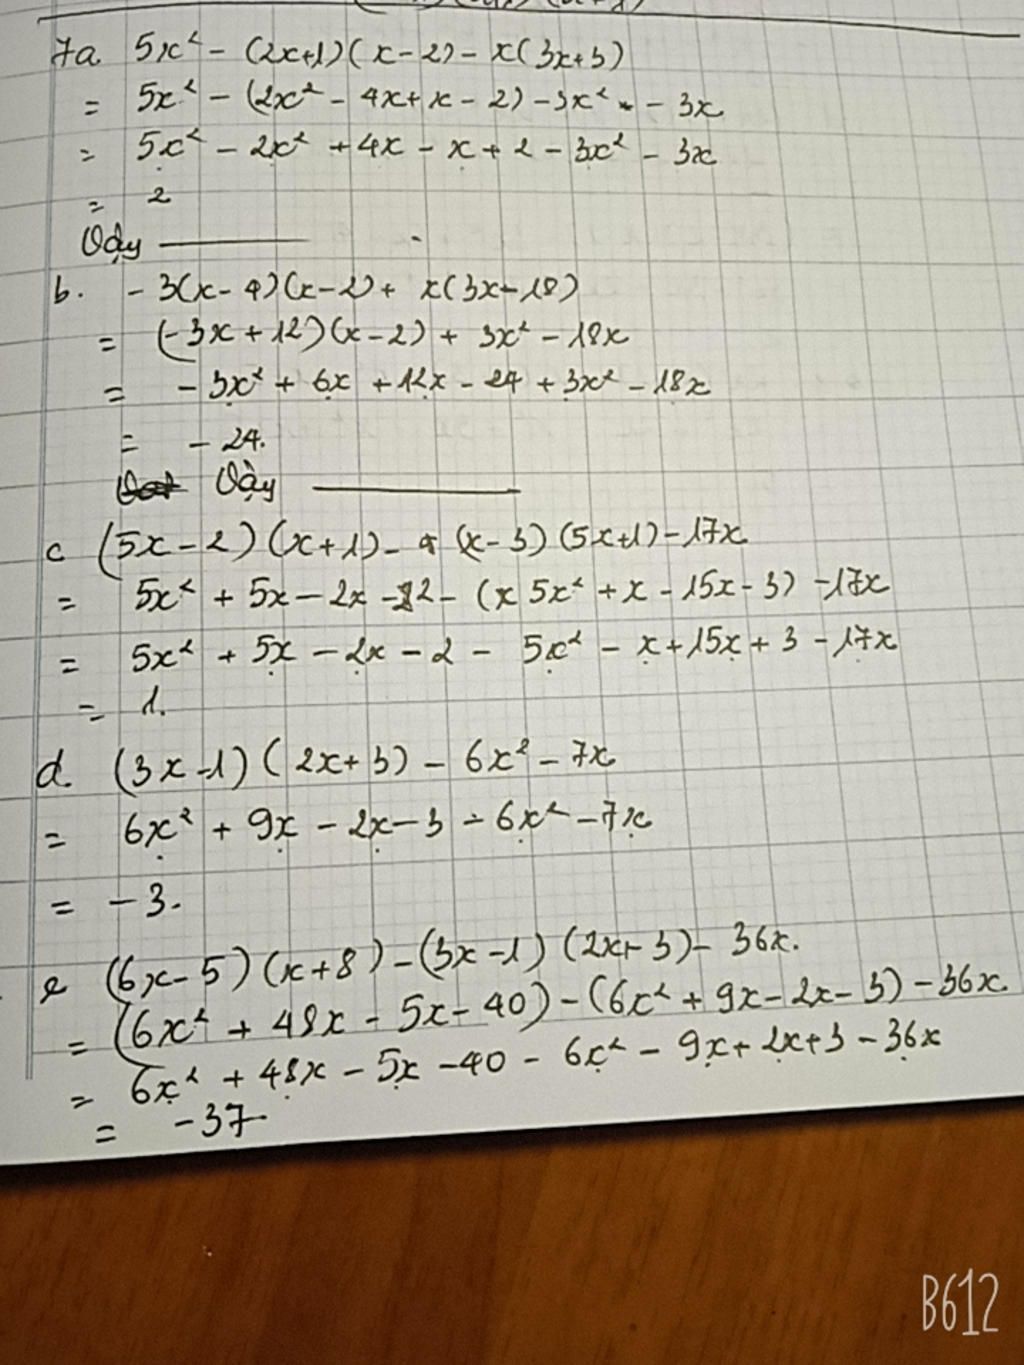 7a 5x² - (2x+1)(x-2) - x(3x+3)
= 5x² - (2x² - 4x + x - 2) - 3x² - - 3x
= 5x² - 2x² + 4x - x + 2 - 3x² - 3x
= 2
Vậy
b. - 3(x-4)(x-2) + x(3x-18)
= (-3x+12)(x-2) + 3x² - 18x
= - 3x² + 6x + 12x - 24 + 3x² - 18x
= - 24.
Vậy
c (5x-2)(x+1) - (x-3)(5x+1) - 17x
= 5x² + 5x - 2x - 2 - (x 5x² + x - 15x - 3) - 17x
= 5x² + 5x - 2x - 2 - 5x² - x + 15x + 3 - 17x
= 1.
d. (3x-1)(2x+3) - 6x² - 7x
= 6x² + 9x - 2x - 3 - 6x² - 7x
= -3.
e (6x-5)(x+8) - (3x-1)(2x+3) - 36x.
= (6x² + 48x - 5x - 40) - (6x² + 9x - 2x - 3) - 36x.
= 6x² + 48x - 5x - 40 - 6x² - 9x + 2x + 3 - 36x
= -37.
B612